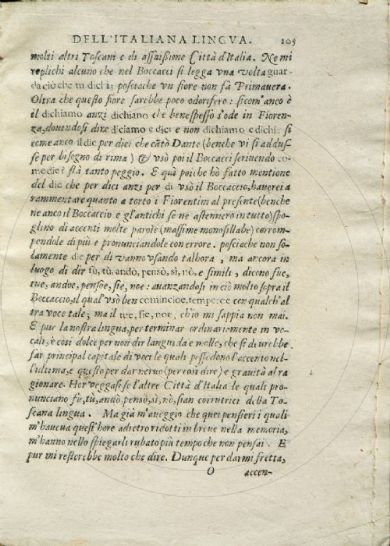 DELL'ITALIANA LINGVA. 105
molti altri Toscani e di assaissime Città d'Italia. Ne mi
replichi alcuno che nel Boccacci si legga vna volta guar
da ciò che tu dici: posciache vn fiore non fà Primauera.
Oltra che questo fiore sarebbe poco odorifero: sicom'anco è
il dichiamo anzi dichiano che benespesso s'ode in Fioren-
za, douendosi dire diciamo e dici e non dichiamo e dichi: si
come anco il die per dici che cātò Dante (benche vi si addus-
se per bisogno di rima) & vsò poi il Boccacci scriuendo co-
medie: stà tanto peggio. E quà poi che hò fatto mentione
del die che per dici anzi per di vsò il Boccaccio, hauerei a
rammentare quanto a torto i Fiorentini al presente (benche
ne anco il Boccaccio e gl'antichi se ne astennero in tutto) spo-
glino di accenti molte parole (massime monosillabe) corrom-
pendole di più e pronunciandole con errore. posciache non so-
lamente die per di vanno vsando talhora, ma ancora in
luogo di dir fù, tù, andò, pensò, sì, nò, e simili, dicono fue,
tue, andoe, pensoe, sie, noe: auanzandosi in ciò molto sopra il
Boccaccio, al qual vsò ben cominciòe, temperòe con qualch'al
tra voce tale; ma il tue, sie, noe, ch'io mi sappia non mai.
E pur la nostra lingua, per terminar ordinariamente in vo-
cali, è così dolce per non dir languida e molle, che si dieurebbe
far principal capitale di voci le quali possedono l'accento nel-
l'ultima, e questo per dar neruo (per così dire) e grauità al ra
gionare. Hor veggasi se l'altre Città d'Italia le quali pro-
nunciano fù, tù, andò, pensò, sì, nò, sian corrutrici della To-
scana lingua. Ma già m'aueggo che quei pensieri i quali
m'haueua quest'hore adietro ridotti in breue nella memoria,
m'hanno nello spiegarli rubato più tempo che non pensai. E
pur mi resterebbe molto che dire. Dunque per darmi fretta,
O accen-